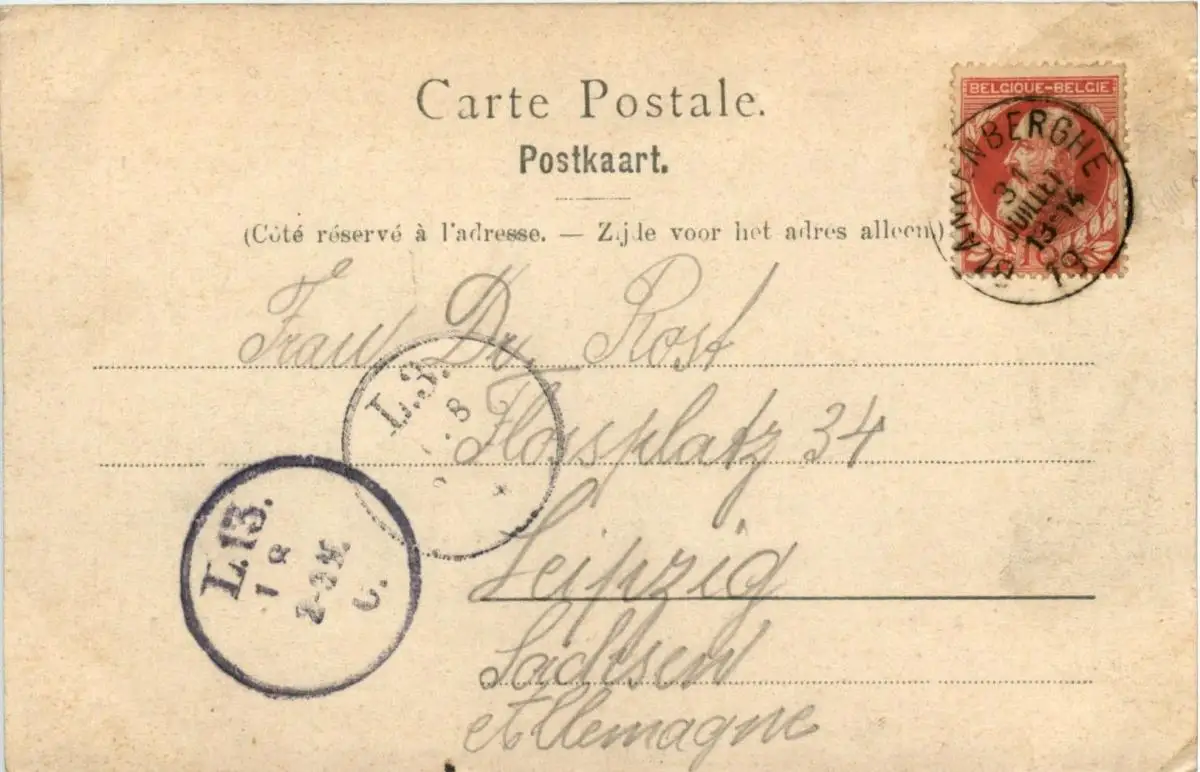 Carte Postale.
Postkaart.
(Côté réservé à l'adresse. — Zijde voor het adres alleen)
BELGIQUE-BELGIE
10
BLANKENBERGHE
31
JUILLET
13-14
19
Frau Dr. Rost
Flossplatz 34
Leipzig
Sachsen
Allemagne
L.3.
8
*
L.13.
1 8
2-3 N.
C.